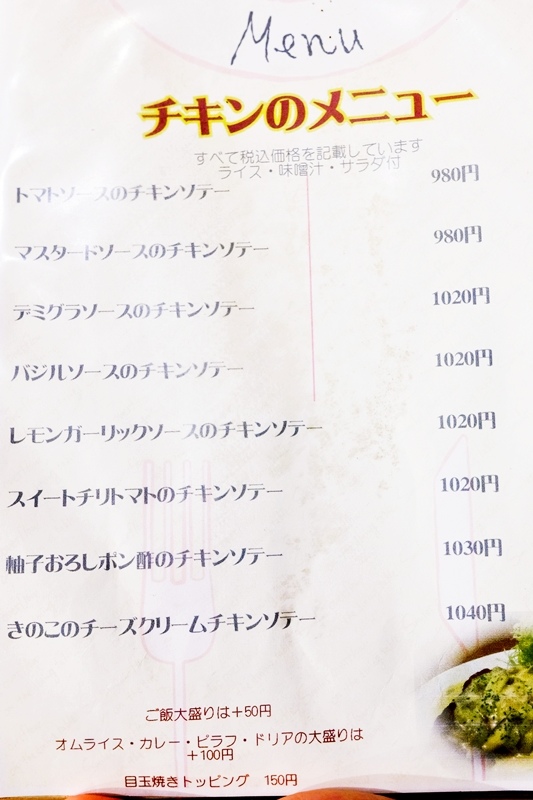 Menu
チキンのメニュー
すべて税込価格を記載しています
ライス・味噌汁・サラダ付
トマトソースのチキンソテー 980円
マスタードソースのチキンソテー 980円
デミグラソースのチキンソテー 1020円
バジルソースのチキンソテー 1020円
レモンガーリックソースのチキンソテー 1020円
スイートチリトマトのチキンソテー 1020円
柚子おろしポン酢のチキンソテー 1030円
きのこのチーズクリームチキンソテー 1040円
ご飯大盛りは+50円
オムライス・カレー・ピラフ・ドリアの大盛りは
+100円
目玉焼きトッピング 150円